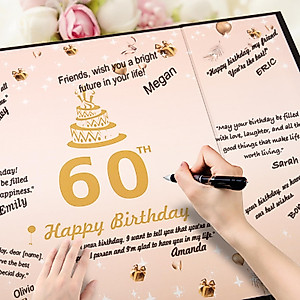 Friends, wish you a bright
future in your life!
Megan
Happy birthday, my friend.
You're the best!"
ERIC
"May your birthday be filled
with love, laughter, and all the
good things that make life
worth living."
Sarah
60TH
Happy Birthday
be filled
happiness."
Emily
"Happy birthday, we
our best wishes.
day, dear [name].
serve the best
special day."
Olivia
your birthday, I want to tell you that you're
person and I'm glad to have you in my life."
Amanda